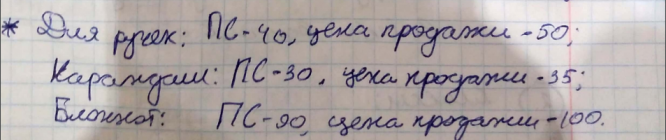 * Для ручек: ПС-40, цена продажи -50;
Карандаш: ПС-30, цена продажи -35;
Блокнот: ПС-90, цена продажи -100.